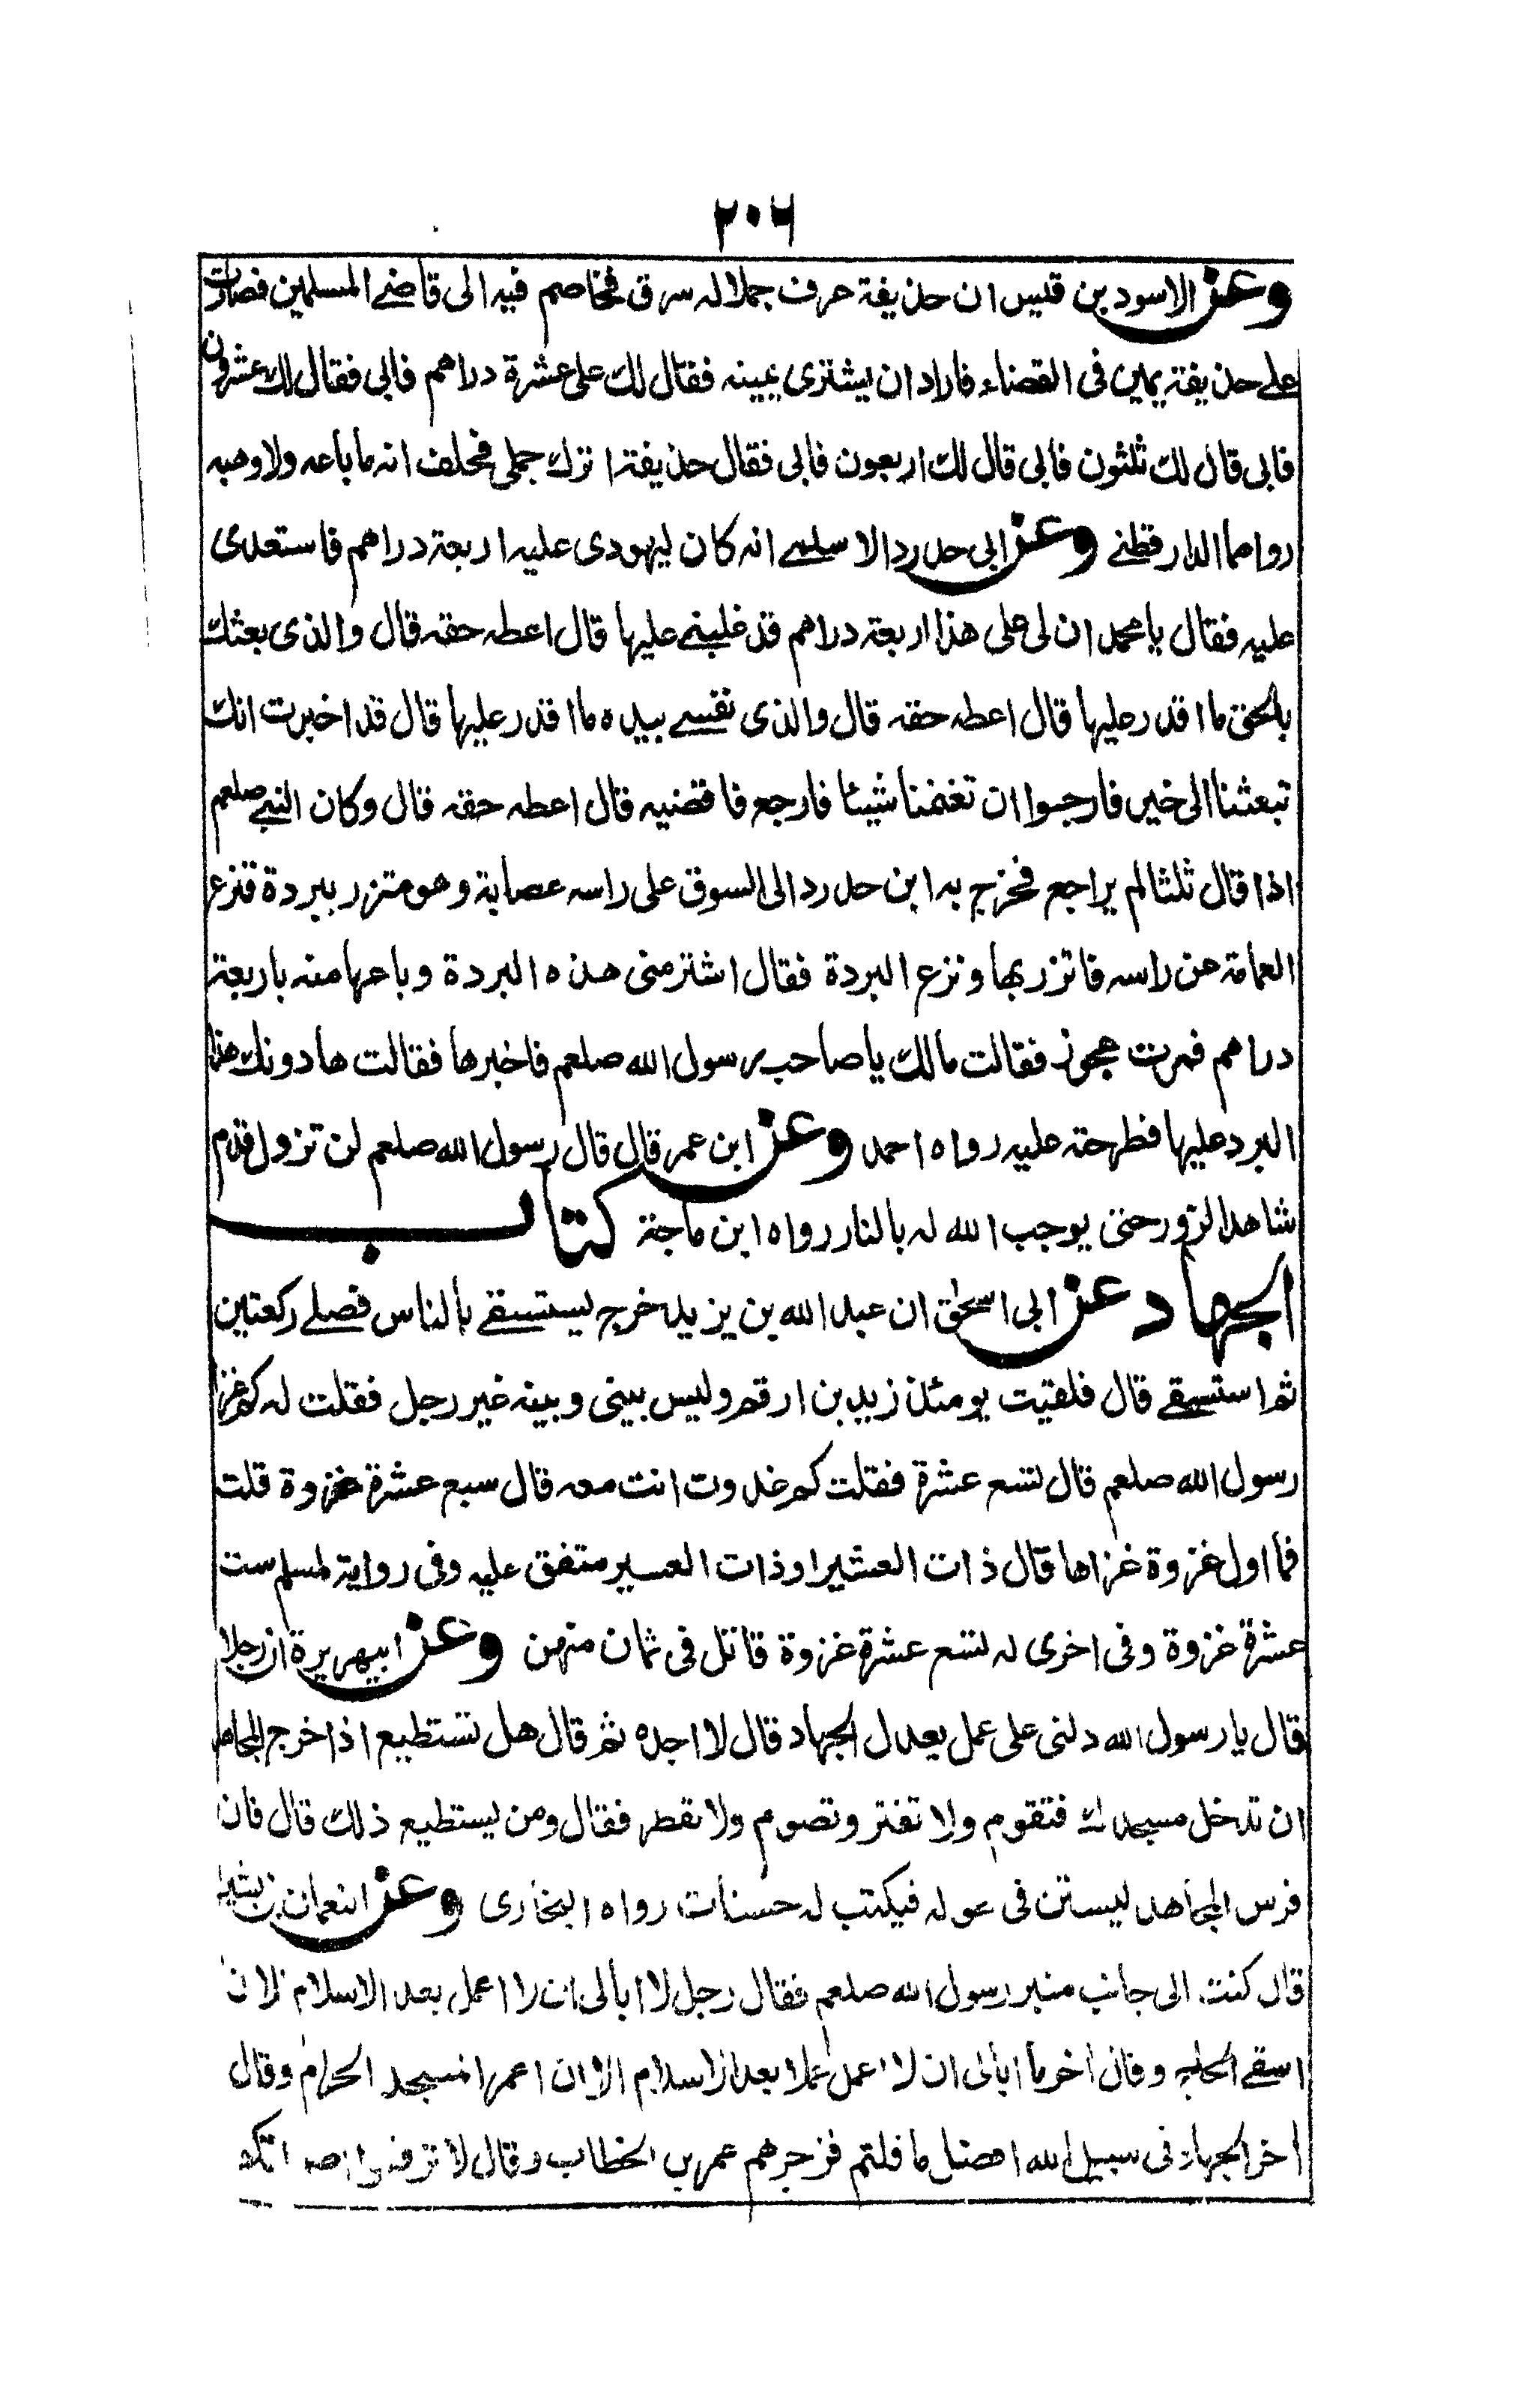 ٢٠٦
وعن الاسود بن قيس ان حذيفة عرف جملا له سرق فخاصم فيه الى قاضے المسلمين فصارت
علے حذيفة يمين فى القضاء فاراد ان يشترى يمينه فقال لك على عشرة دراهم فابى فقال لك عشرون
فابى قال لك ثلثون فابى قال لك اربعون فابى فقال حذيفة اترك جملى فحلف انه ما باعه ولا وهبه
رواهما الدارقطنے وعن ابى حدرد الاسلمے انه كان ليهودى عليه اربعة دراهم فاستعدى
عليه فقال يا محمد ان لى على هذا اربعة دراهم قد غلبنے عليها قال اعطه حقه قال والذى بعثك
بالحق ما اقدر عليها قال اعطه حقه قال والذى نفسے بيده ما اقدر عليها قال قد اخبرت انك
تبعثنا الى خيبر فارجوا ان تغنمنا شيئا فارجع فاقضيه قال اعطه حقه قال وكان النبے صلعم
اذا قال ثلثا لم يراجع فخرج به ابن حدرد الى السوق على راسه عصابة وهو متزر ببردة فنزع
العمامة عن راسه فاتزر بها ونزع البردة فقال اشتر منى هذه البردة وباعها منه باربعة
دراهم فمرت عجوز فقالت مالك يا صاحب رسول الله صلعم فاخبرها فقالت ها دونك هذا
البرد عليها فطرحته عليه رواه احمد وعن ابن عمر قال قال رسول الله صلعم لن تزول قدم
شاهد الزور حتى يوجب الله له بالنار رواه ابن ماجة كتاب
الجهاد عن ابى اسحق ان عبد الله بن يزيد خرج ليستسقے بالناس فصلے ركعتين
ثم استسقے قال فلقيت يومئذ زيد بن ارقم وليس بينى وبينه غير رجل فقلت له كم غزا
رسول الله صلعم قال تسع عشرة فقلت كم غدوت انت معه قال سبع عشرة غزوة قلت
فما اول غزوة غزاها قال ذات العشير او ذات العسير متفق عليه وفى رواية لمسلم ست
عشرة غزوة وفى اخرى له تسع عشرة غزوة قاتل فى ثمان منهن وعن ابيهريرة ان رجلا
قال يا رسول الله دلنى على عمل يعدل الجهاد قال لا اجده ثم قال هل تستطيع اذا خرج المجاهد
ان تدخل مسجدك فتقوم ولا تفتر وتصوم ولا تفطر فقال ومن يستطيع ذلك قال فان
فرس المجاهد ليستن فى عوله فيكتب له حسنات رواه البخارى وعن النعمان بن بشير
قال كنت الى جانب منبر رسول الله صلعم فقال رجل لا ابالى ان لا اعمل بعد الاسلام الا ان
اسقے الحاج وقال اخر ما ابالى ان لا اعمل عملا بعد الاسلام الا ان اعمر المسجد الحرام وقال
اخر الجهاد فى سبيل الله افضل ما قلتم فزجرهم عمر بن الخطاب وقال لا ترفعوا اصواتكم